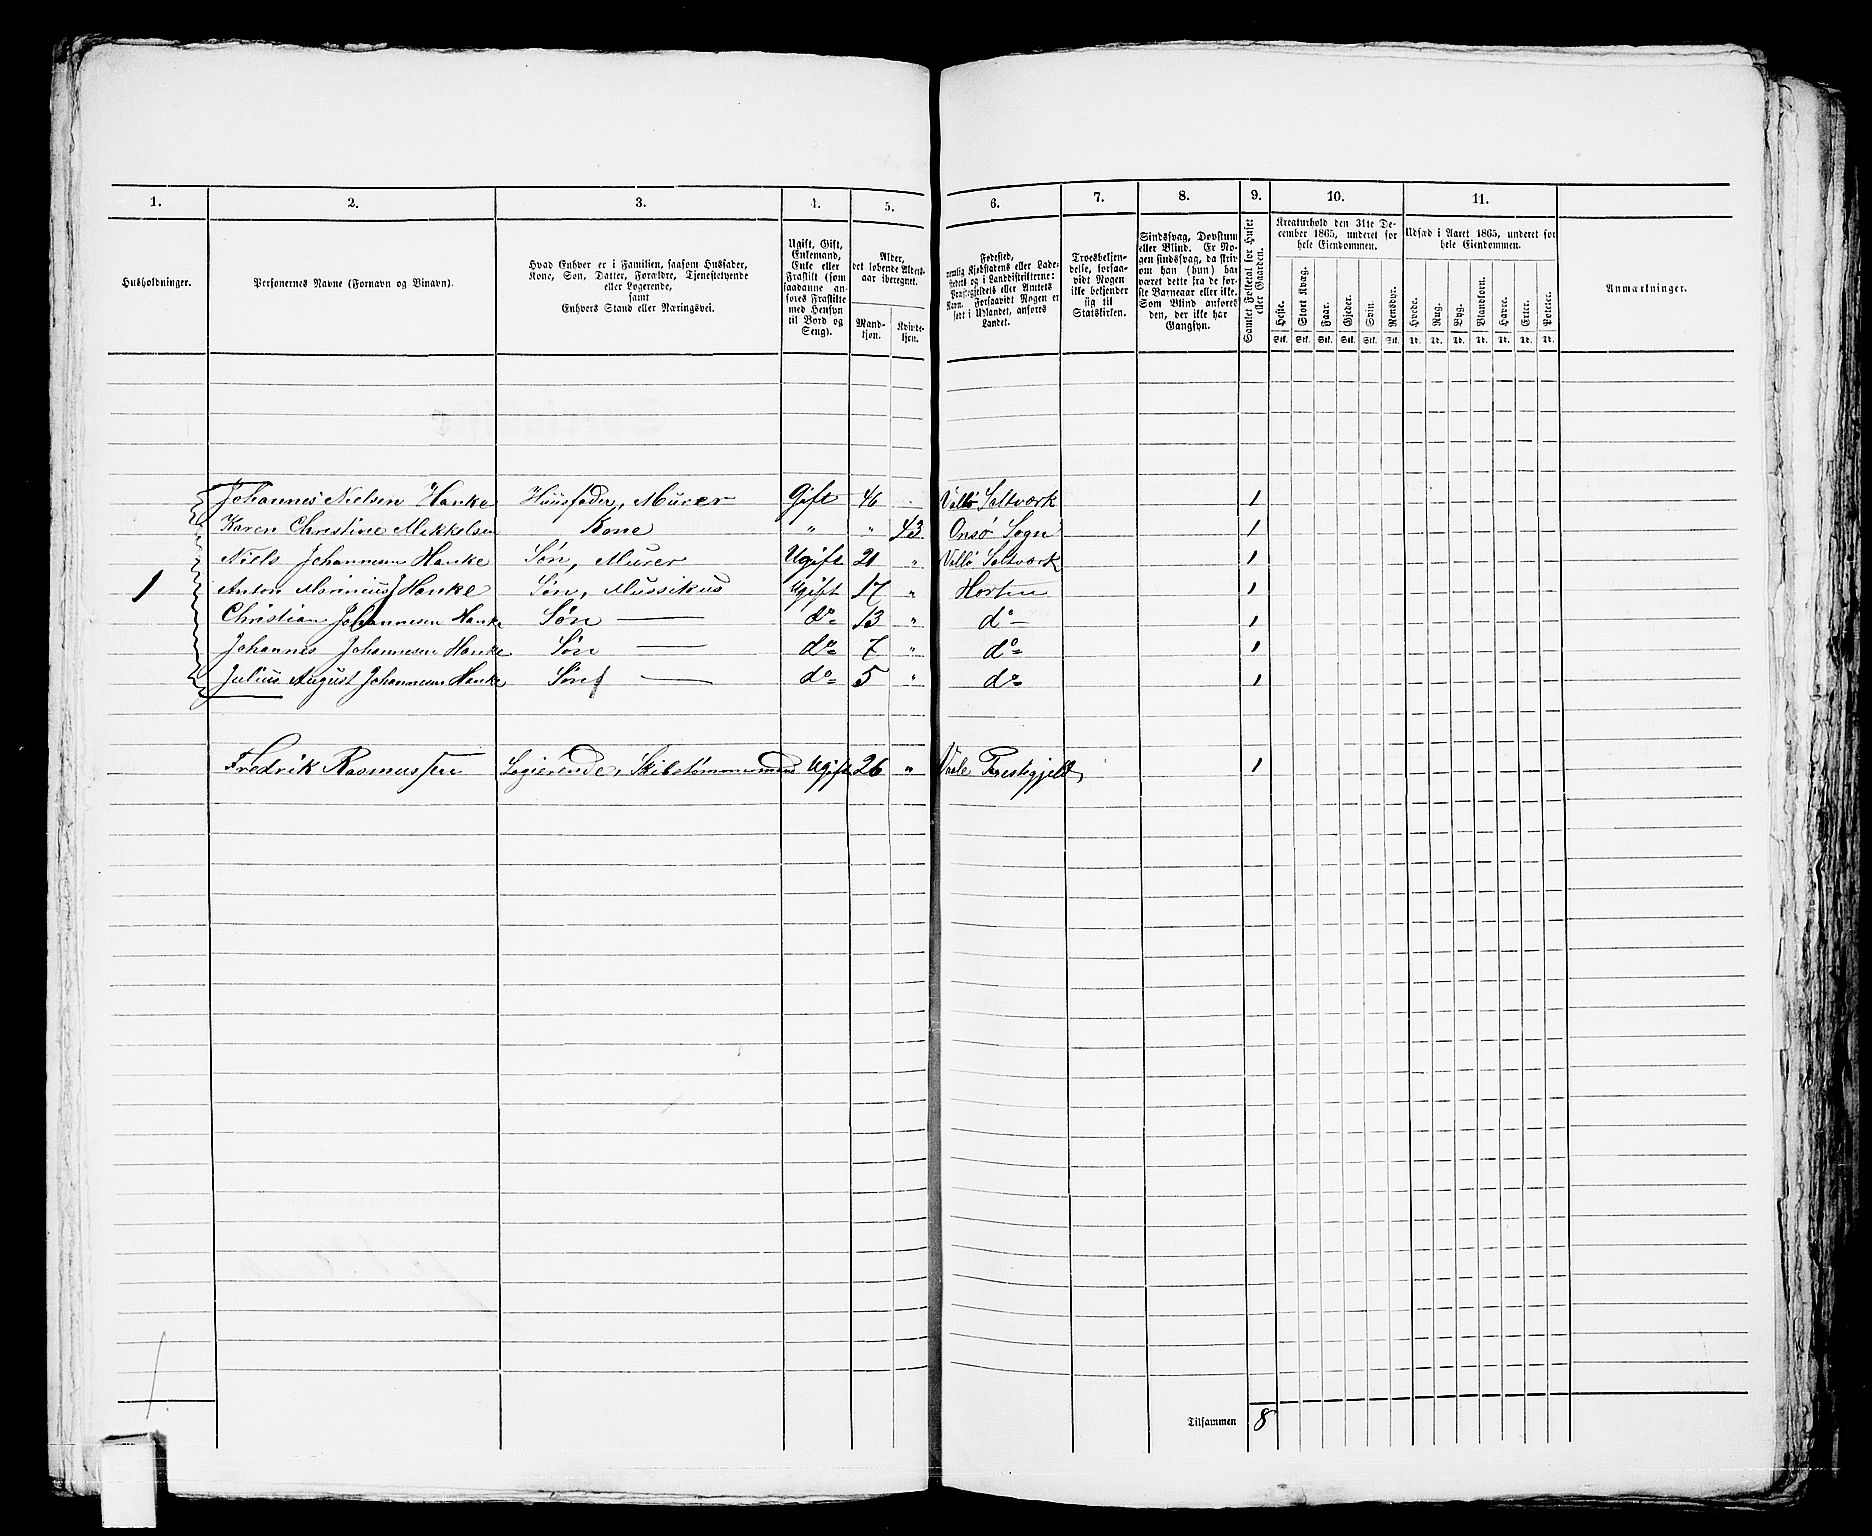 1. 2. 3. 4. 5. 6. 7. 8. 9. 10. 11.
Husholdninger.
Personernes Navne (Fornavn og Binavn).
Hvad Enhver er i Familien, saasom Husfader,
Kone, Søn, Datter, Forældre, Tjenestetyende
eller Logerende,
samt
Enhvers Stand eller Næringsvei.
Ugift, Gift,
Enkemand,
Enke eller
Fraskilt (som
saadanne an-
føres Fraskilte
med Hensyn
til Bord og
Seng).
Alder,
det løbende Alders-
aar iberegnet.
Mand-
kjøn.
Kvinde-
kjøn.
Fødested,
nemlig Kjøbstadens eller Lade-
stedets og i Landdistrikterne:
Præstegjeldets eller Amtets
Navn. Forsaavidt Nogen er
født i Udlandet, anføres
Landet.
Troesbekjen-
delse, forsaa-
vidt Nogen
ikke bekjender
sig til
Statskirken.
Sindssvag, Døvstum
eller Blind. Er No-
gen sindssvag, da skriv
om han (hun) har
været dette fra de før-
ste Barneaar eller ikke.
Som Blind anføres
den, der ikke har
Gangsyn.
Samlet Folketal for Huset
eller Gaarden.
Kreaturhold den 31te De-
cember 1865, underet for
hele Eiendommen.
Heste. Stort Kvæg. Faar. Gjeder. Svin. Rensdyr.
Stk. Stk. Stk. Stk. Stk. Stk.
Udsæd i Aaret 1865, underet for
hele Eiendommen.
Hvede. Rug. Byg. Blandkorn. Havre. Erter. Poteter.
Td. Td. Td. Td. Td. Td. Td.
Anmærkninger.
Johannes Nielsen Hanke Huusfader, Murer Gift 46 Vallø Saltværk 1
Karen Christine Mikkelsen Kone " " 43 Onsø Sogn 1
Niels Johannesen Hanke Søn, Murer Ugift 21 " Vallø Saltværk 1
1 Anton Marinius J Hanke Søn, Mussikus Ugift 17 " Horten 1
Christian Johannesen Hanke Søn — do 13 " do 1
Johannes Johannesen Hanke Søn — do 7 " do 1
Julius August Johannesen Hanke Søn — do 5 " do 1
Fredrik Rasmussen Logierende, Skibstømmermand Ugift 26 " Vaale Præstegjeld, 1
1
Tilsammen 8